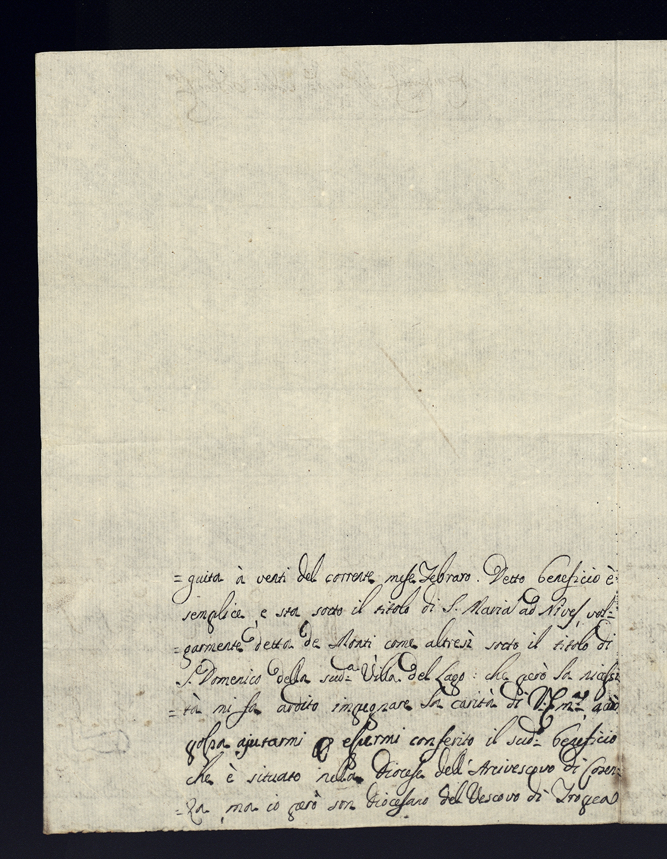 =guita à venti del corrente mese Febraro. Detto beneficio è
semplice, e sta sotto il titolo di S. Maria ad Nives, vol=
=garmente detta de Monti come altresì sotto il titolo di
S. Domenico della sud.ª Villa del Lago: che però la necessi
=tà mi fa ardito impegnare la carità di V. Em.ª acciò
possa ajutarmi p essermi conferito il sud.º beneficio
che è situato nella Diocese dell' Arcivescovo di Cosen=
=za, ma io però son diocesano del Vescovo di Tropea